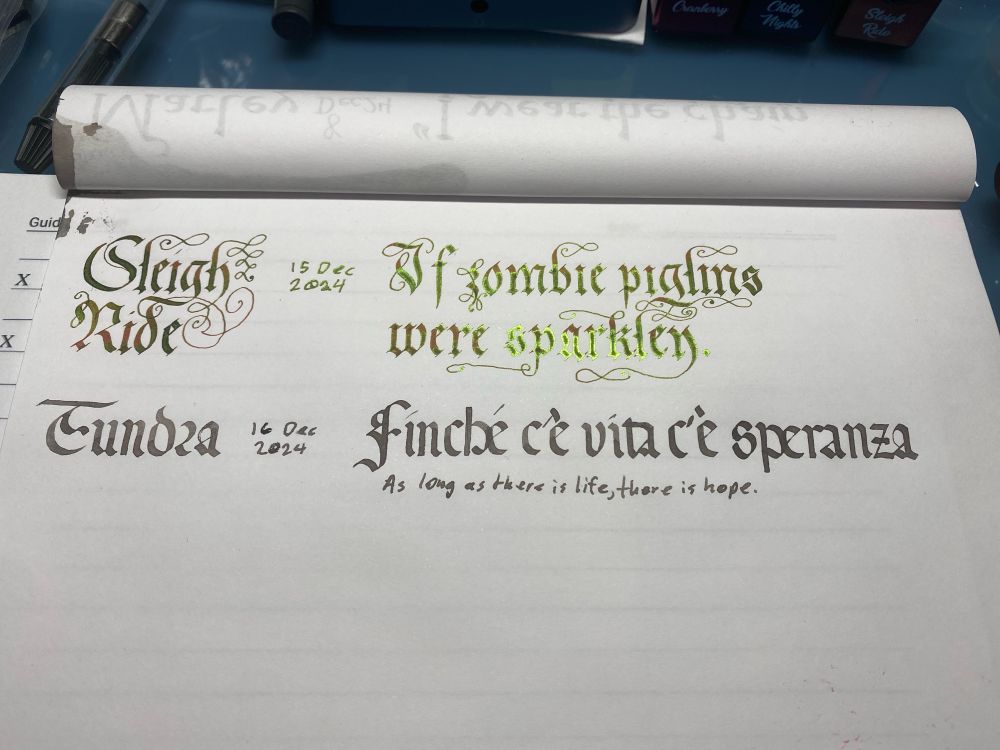 Cranberry
Chilly
Nights
Sleigh
Ride
Marley & Dec 24 "I wear the chain
Guid
x
x
Sleigh
Ride
15 Dec
2024
If zombie piglins
were sparkley.
Tundra
16 Dec
2024
Finché c'è vita c'è speranza
As long as there is life, there is hope.